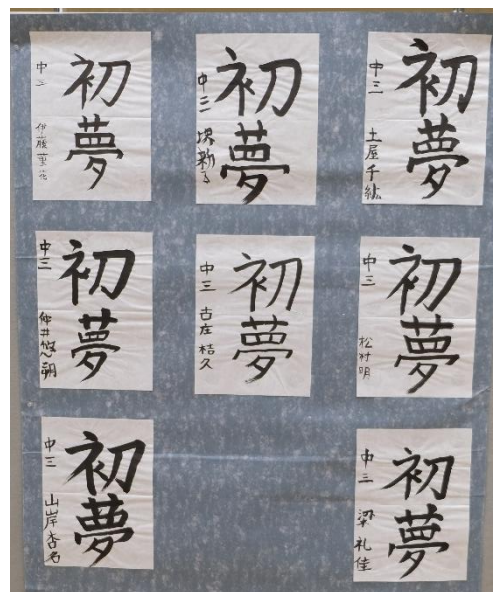 初夢
中三
初夢
中三
初夢
中三 土屋千紘
初夢
中三
初夢
中三 古庄桔久
初夢
中三 松村明
初夢
中三 山岸杏名
初夢
中三 梁礼佳